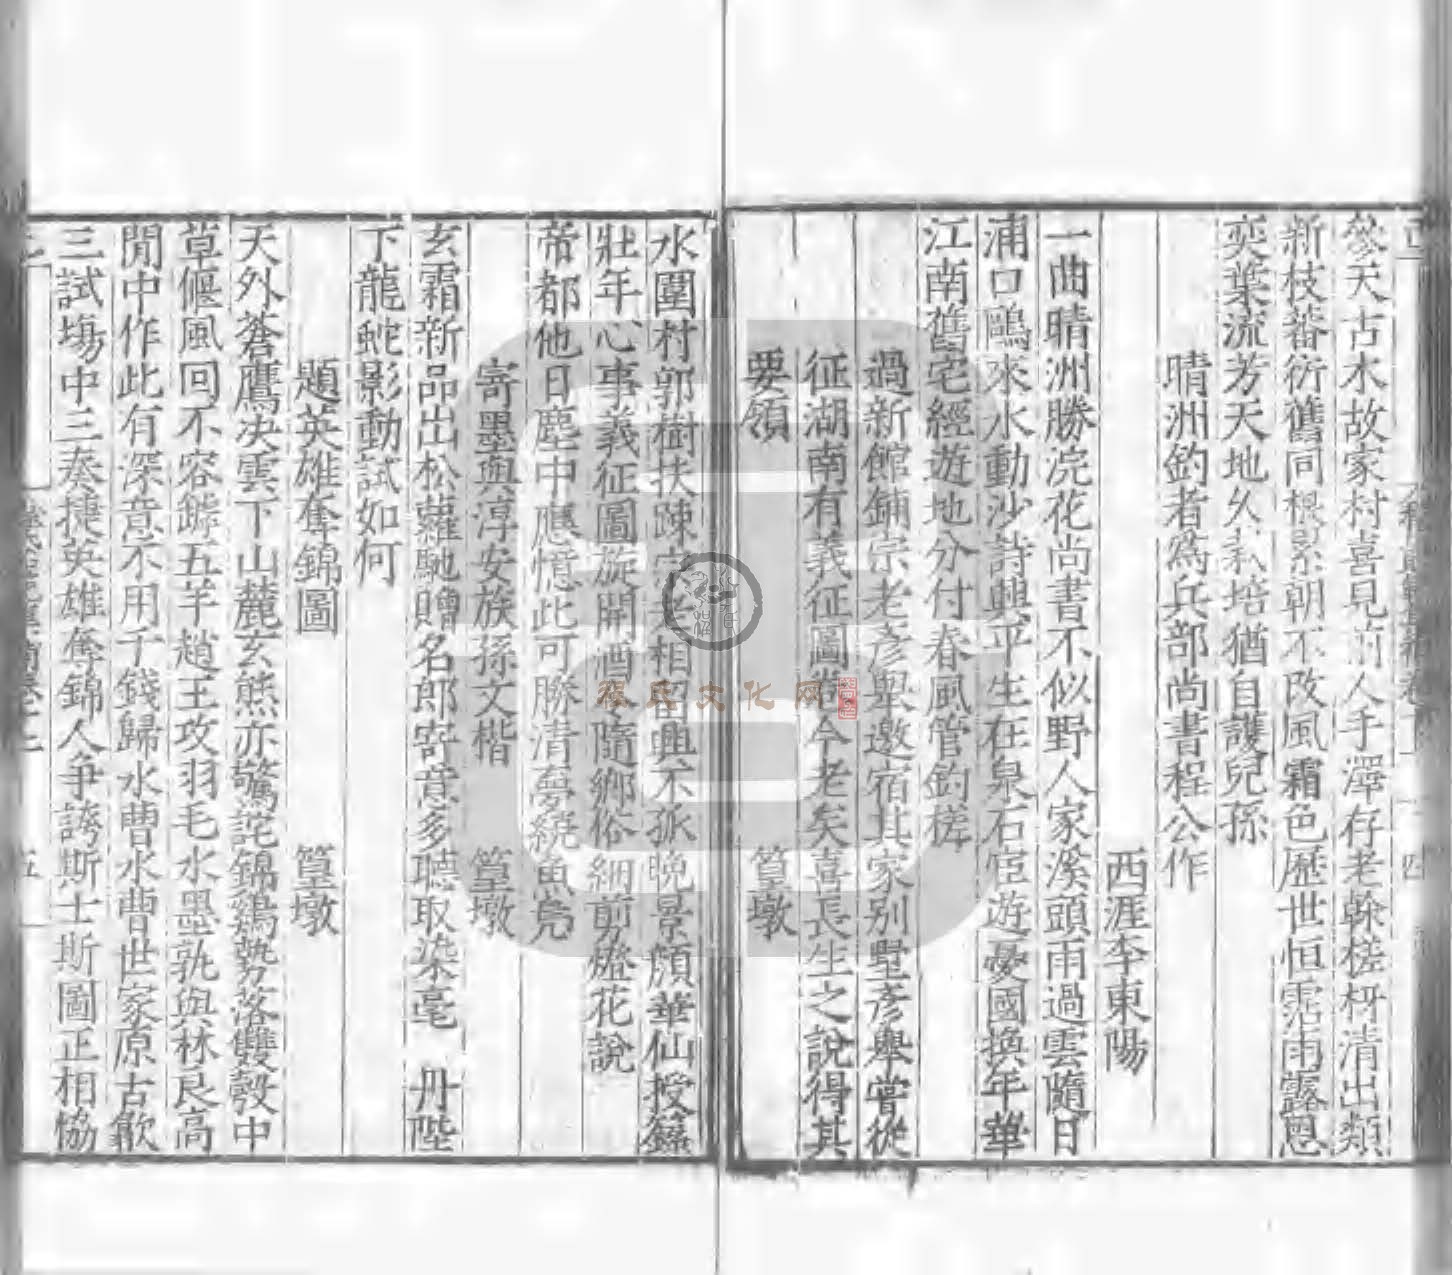 參天古木故家村喜見前人手澤存老榦槎枒清出類
新枝蕃衍舊同根累朝不改風霜色歷世恒霑雨露恩
奕葉流芳天地久栽培猶自護兒孫
晴洲釣者爲兵部尚書程公作
西涯李東陽
一曲晴洲勝浣花尚書不似野人家溪頭雨過雲隨日
浦口鷗來水動沙詩興平生在泉石宦遊憂國換年華
江南舊宅經遊地分付春風管釣槎
過新館鋪宗老彥舉邀宿其家别墅彥舉嘗從
征湖南有義征圖 今老矣喜長生之說得其
要領 篁墩
水圍村郭樹扶踈 相留興不孤晚景頗華仙授籙
壯年心事義征圖旋開 隨鄉俗細剪燈花說
帝都他日塵中應憶此可勝清夢繞魚鳧
寄墨與淳安族孫文楷 篁墩
玄霜新品出松蘿馳贈名郎寄意多聽取染毫 丹陛
下龍蛇影動試如何
題英雄奪錦圖 篁墩
天外蒼鷹决雲下山麓玄熊亦驚詫錦鷄勢落雙彀中
草偃風回不容鏬五羊趙王攻羽毛水墨孰與林良高
閒中作此有深意不用千錢歸水曹水曹世家原古歙
三試塲中三奏捷英雄奪錦人争誇斯士斯圖正相恊
五
四
程氏文化网